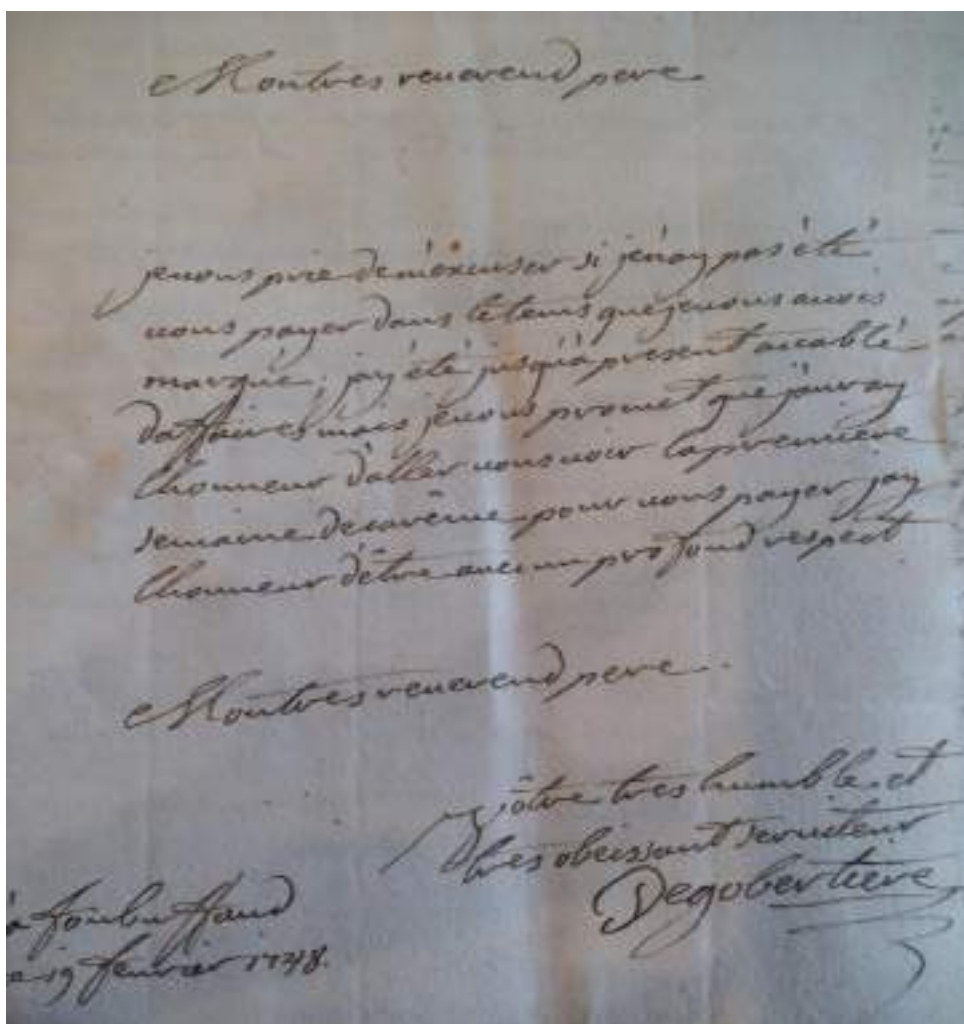 Mon tres reuerend pere
je vous prie de m'éxcuser si je n'ay pas été
vous payer dans le tems que je vous avois
marqué; j'ay été jusqu'à present accablé
d'affaires mais je vous promet que j'auray
lhonneur d'aller vous voir la premiere
semaine de carême pour vous payer jay
lhonneur d'être avec un profond respect
Mon tres reuerend pere.
Vôtre tres humble et
tres obeissant serviteur
Degobertiere
à
19 fevrier 1748.